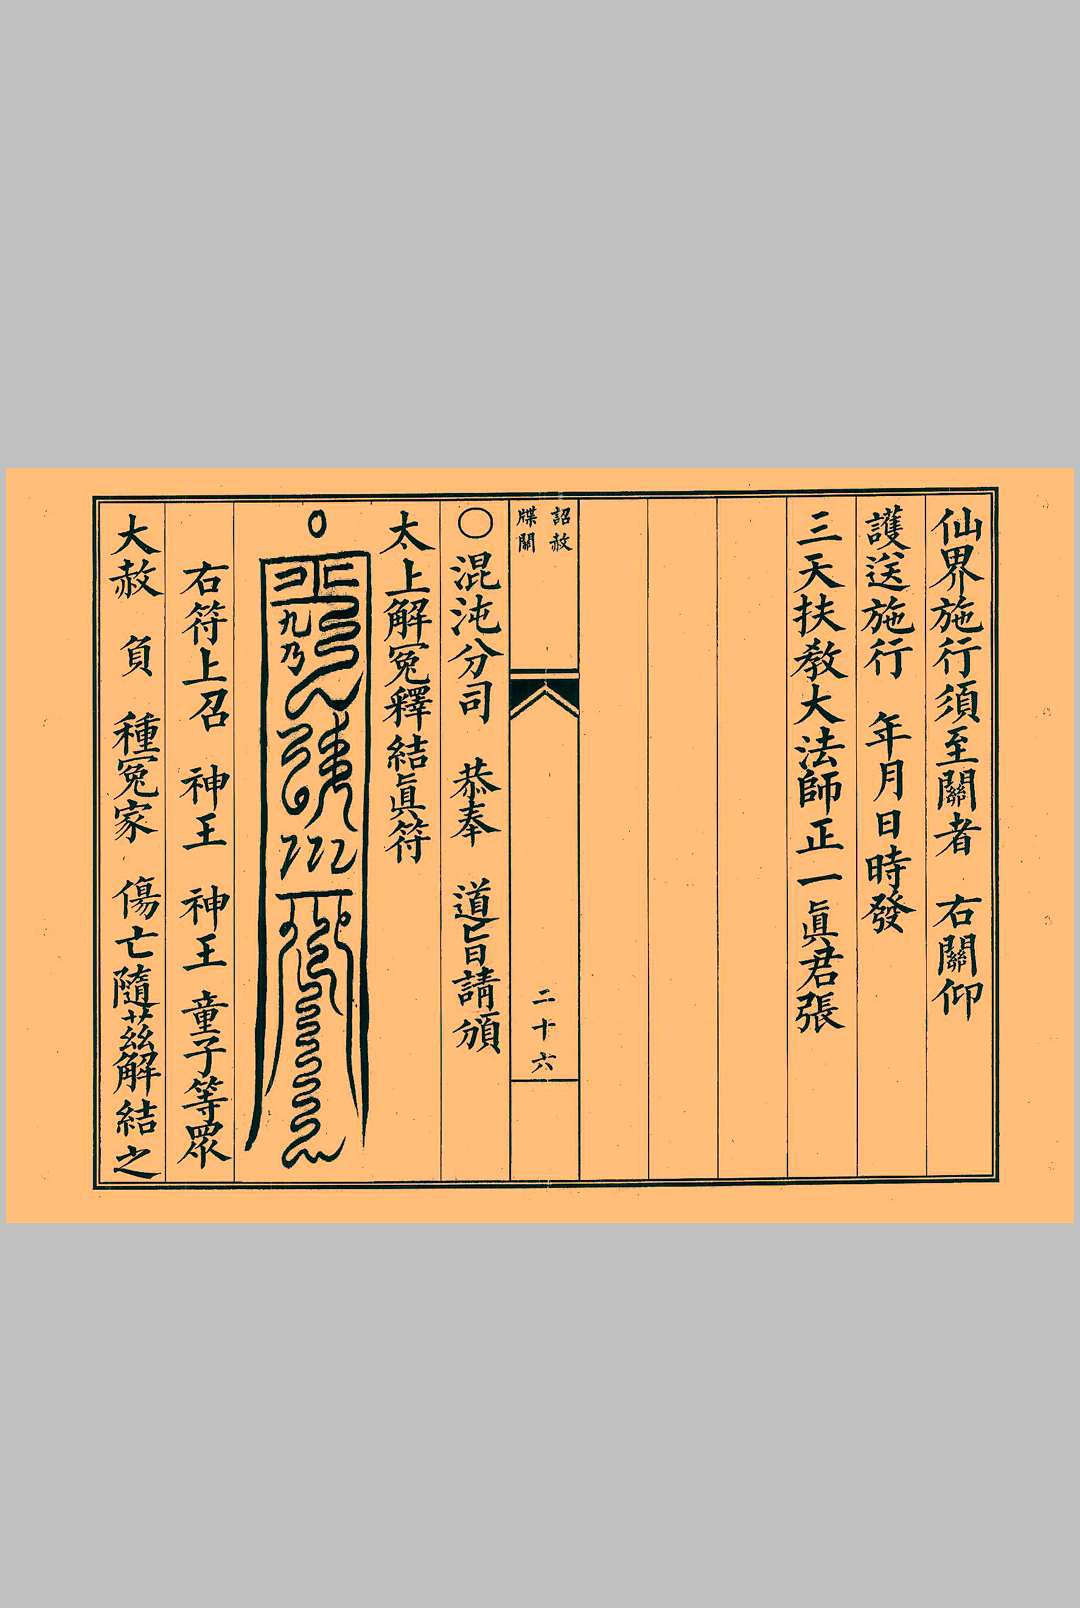 仙界施行須至關者　右關仰
護送施行　年月日時發
三天扶教大法師正一眞君張
詔赦
牒關
二十六
〇混沌分司　恭奉　道旨請頒
太上解冤釋結眞符
右符上召　神王　神王童子等眾
大赦　負　種冤家　傷亡隨茲解結之